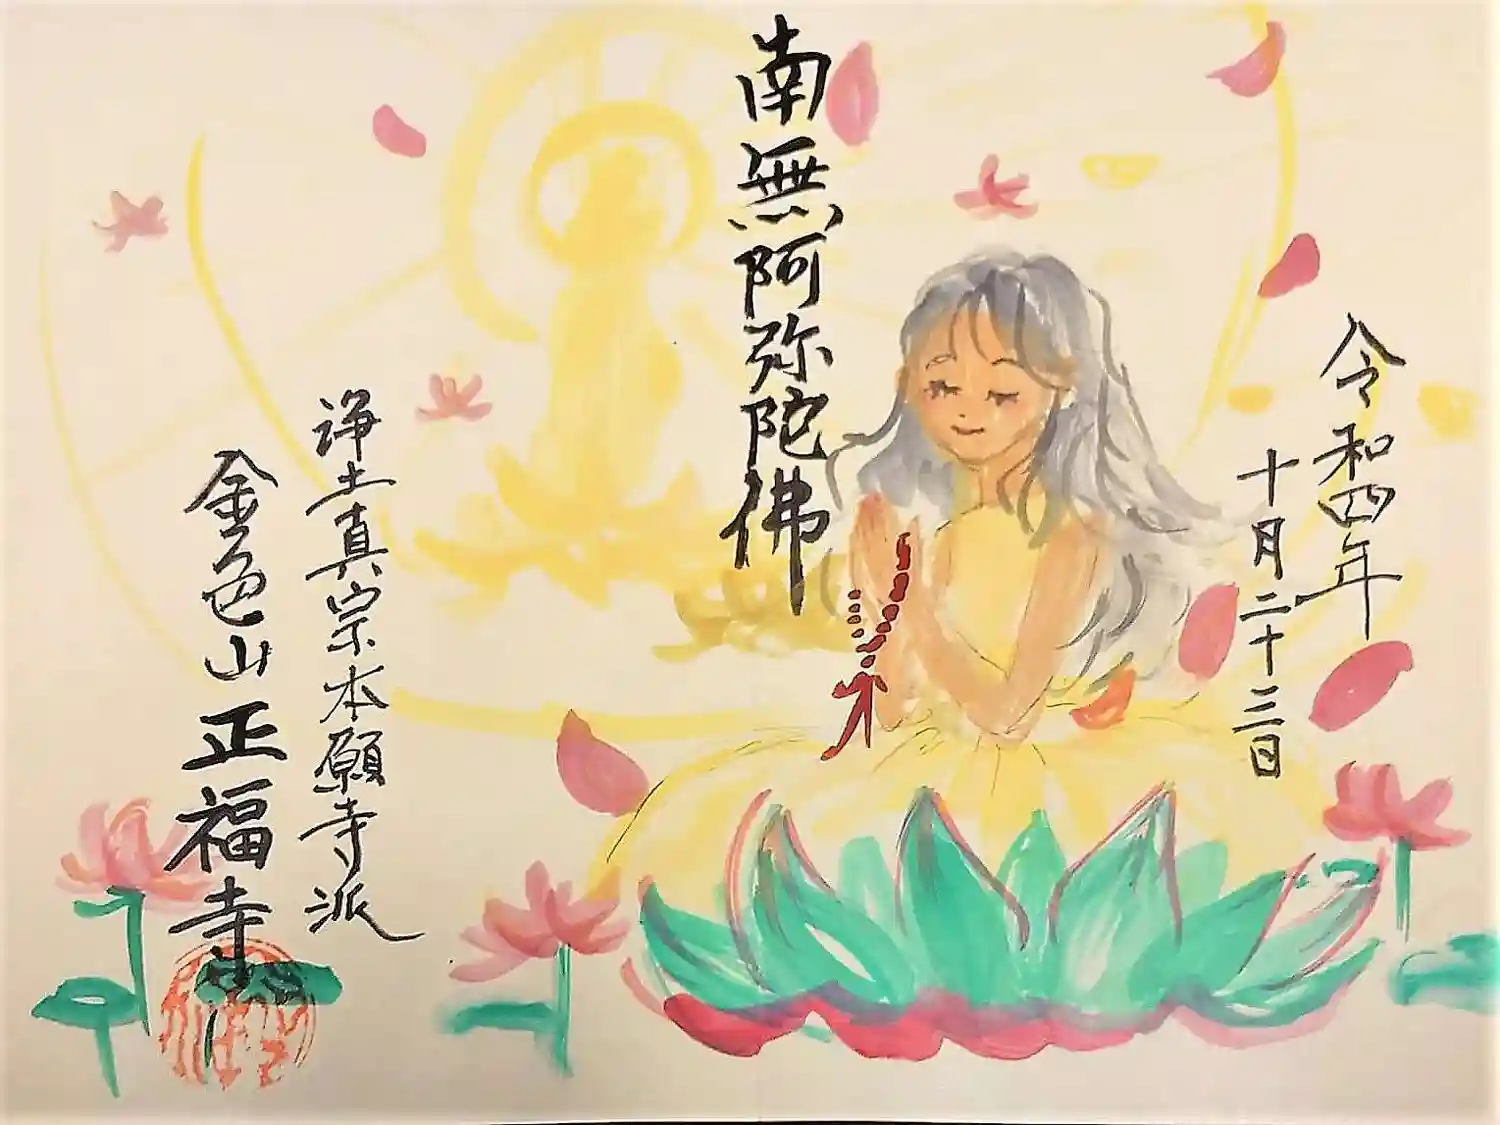 令和四年
十月二十三日
南無阿弥陀佛
浄土真宗本願寺派
金色山正福寺